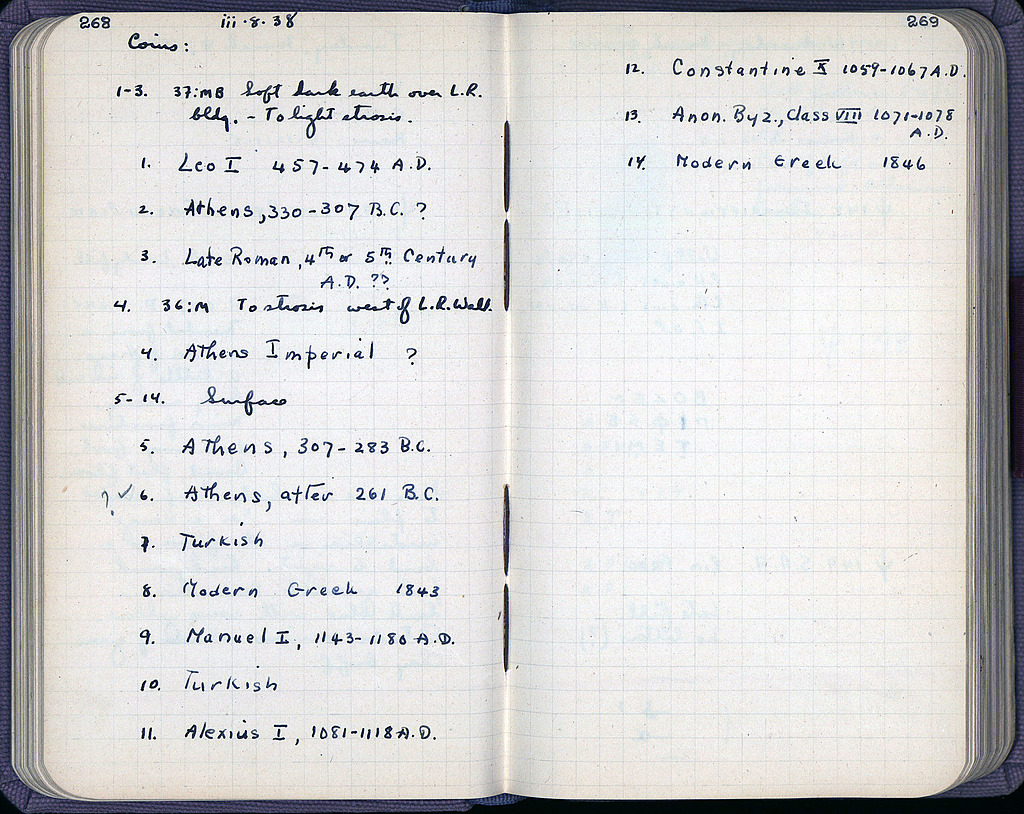 268
iii·8·38
Coins:
1-3. 37:MB Soft dark earth over L.R.
bldg. - To light strosis.
1. Leo I 457-474 A.D.
2. Athens, 330-307 B.C. ?
3. Late Roman, 4th or 5th Century
A.D. ??
4. 36:M To strosis west of L.R. Wall.
4. Athens Imperial ?
5-14. Surface
5. Athens, 307-283 B.C.
? ✓ 6. Athens, after 261 B.C.
7. Turkish
8. Modern Greek 1843
9. Manuel I, 1143-1180 A.D.
10. Turkish
11. Alexius I, 1081-1118 A.D.
269
12. Constantine X 1059-1067 A.D.
13. Anon. Byz., Class VIII 1071-1078
A.D.
14. Modern Greek 1846